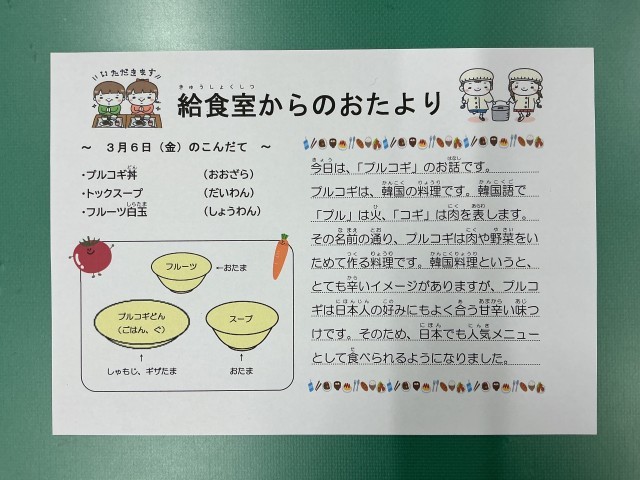 いただきます
給食室からのおたより
～　３月６日（金）のこんだて　～
・プルコギ丼　（おおざら）
・トックスープ　（だいわん）
・フルーツ白玉　（しょうわん）
フルーツ
←おたま
プルコギどん
（ごはん、ぐ）
スープ
↑
しゃもじ、ギザたま
↑
おたま
今日は、「プルコギ」のお話です。
プルコギは、韓国の料理です。韓国語で
「プル」は火、「コギ」は肉を表します。
その名前の通り、プルコギは肉や野菜をい
ためて作る料理です。韓国料理というと、
とても辛いイメージがありますが、プルコ
ギは日本人の好みにもよく合う甘辛い味つ
けです。そのため、日本でも人気メニュー
として食べられるようになりました。